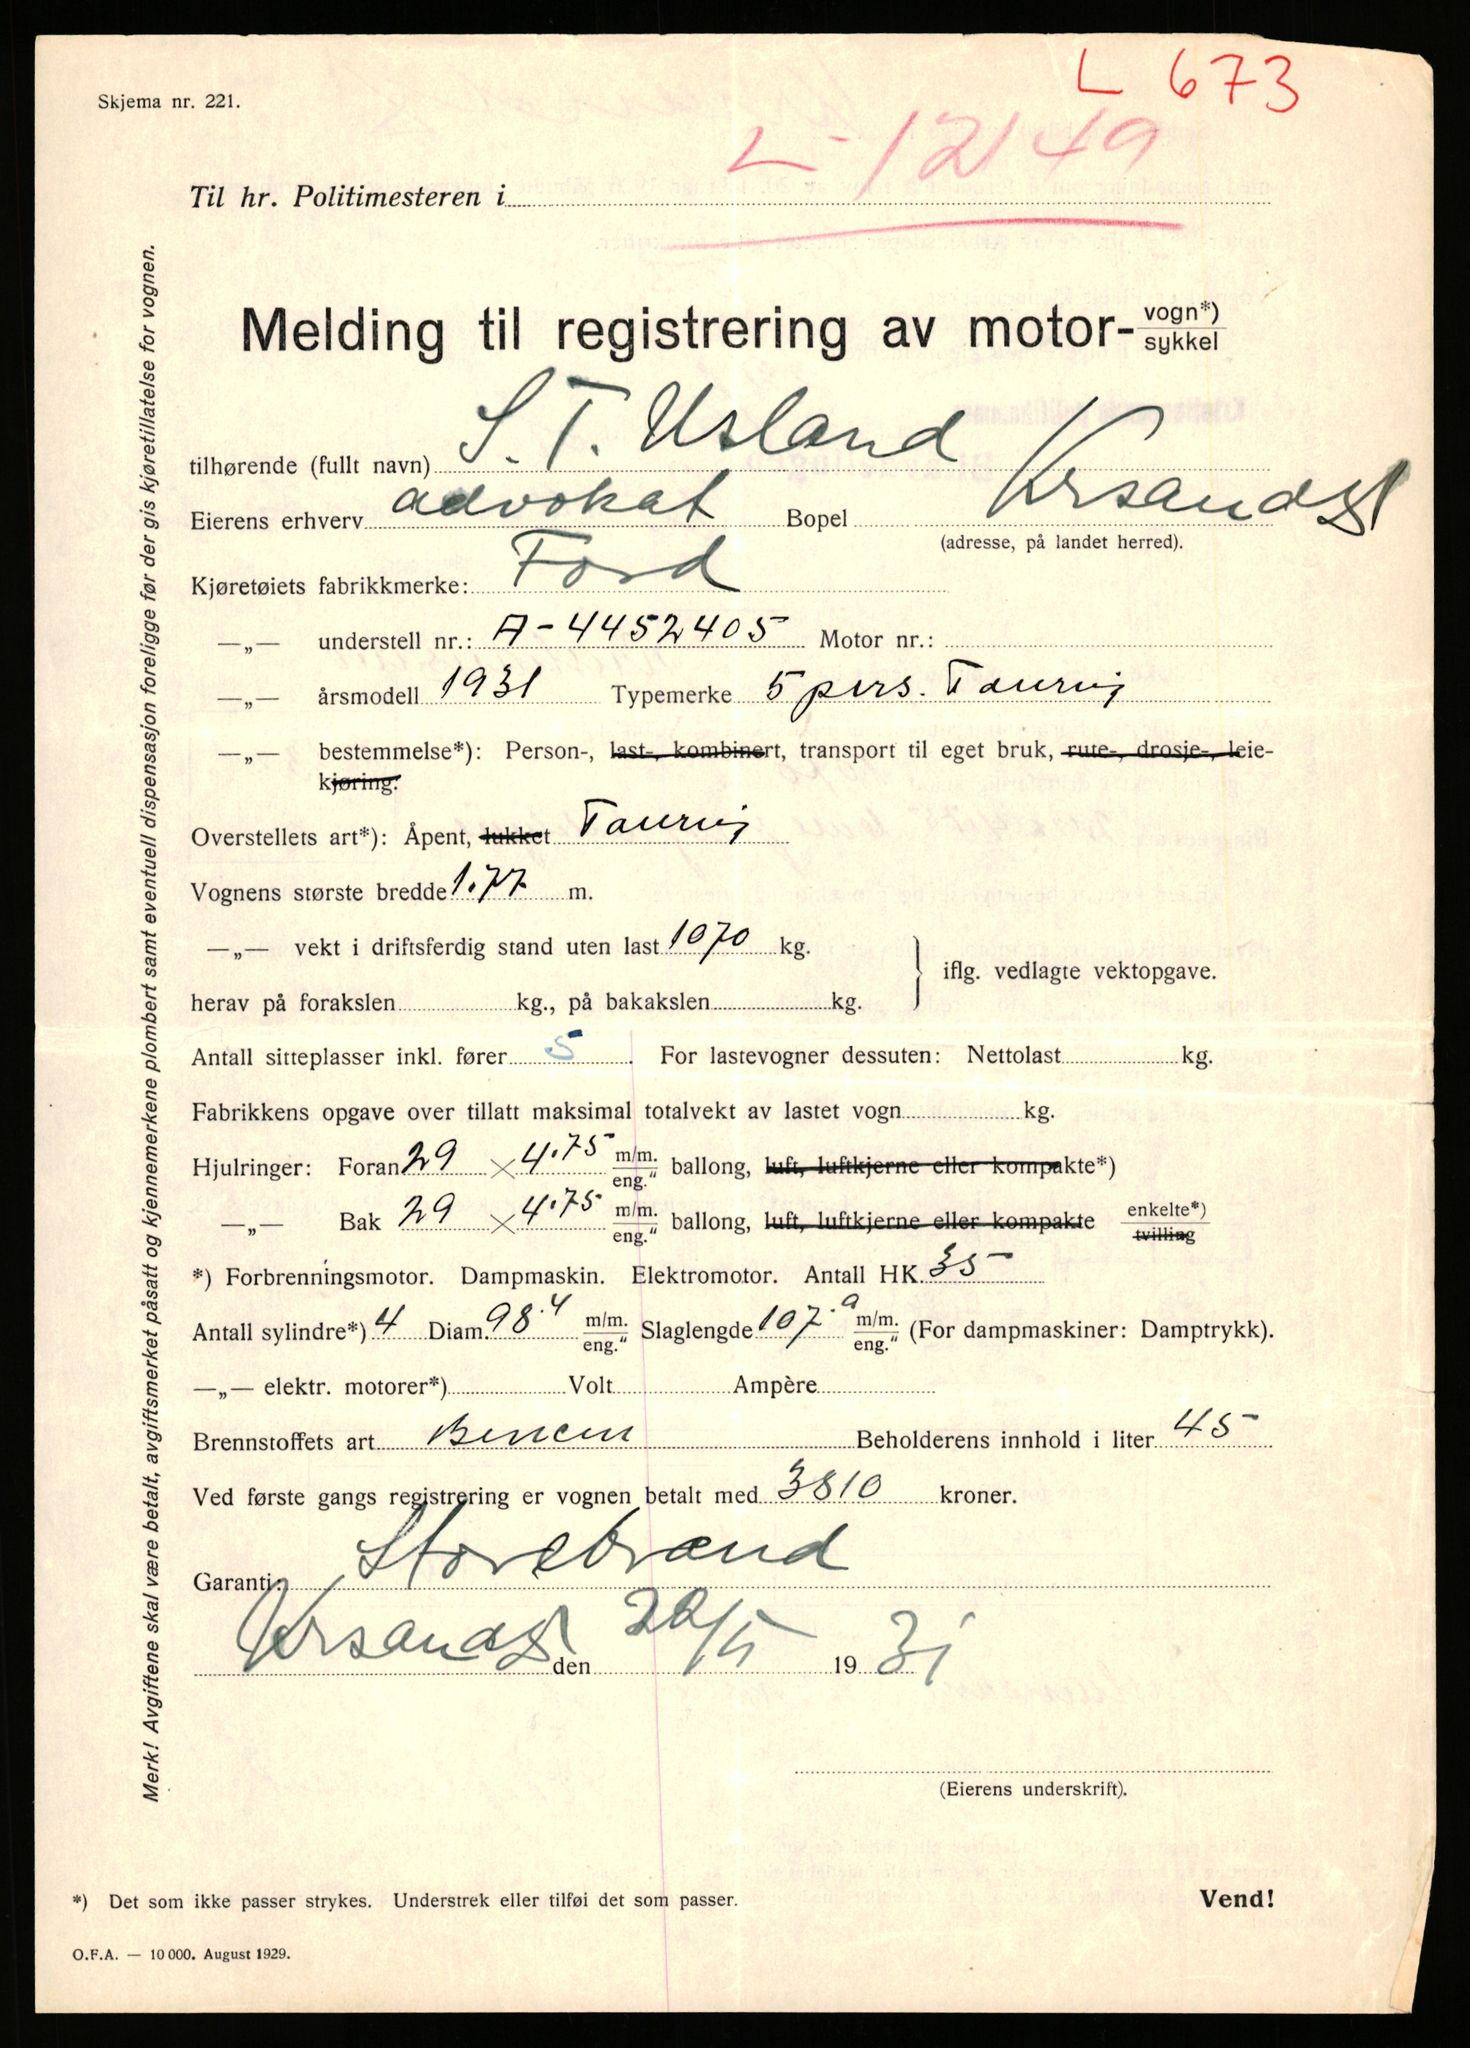 L 673
Skjema nr. 221.
L-12149
Til hr. Politimesteren i
Melding til registrering av motor- vogn*) sykkel
tilhørende (fullt navn) S. T. Usland
Eierens erhverv advokat Bopel Krsand S
(adresse, på landet herred).
Kjøretøiets fabrikkmerke: Ford
—„— understell nr.: A-4452405 Motor nr.:
—„— årsmodell 1931 Typemerke 5 pers. Touring
—„— bestemmelse*): Person-, last-, kombinert, transport til eget bruk, rute-, drosje-, leie-
kjøring.
Overstellets art*): Åpent, lukket Touring
Vognens største bredde 1.77 m.
—„— vekt i driftsferdig stand uten last 1070 kg.
iflg. vedlagte vektopgave.
herav på forakslen kg., på bakakslen kg.
Antall sitteplasser inkl. fører 5. For lastevogner dessuten: Nettolast kg.
Fabrikkens opgave over tillatt maksimal totalvekt av lastet vogn kg.
Hjulringer: Foran 29 × 4.75 m/m. eng." ballong, luft, luftkjerne eller kompakte*)
—„— Bak 29 × 4.75 m/m. eng." ballong, luft, luftkjerne eller kompakte enkelte*) tvilling
*) Forbrenningsmotor. Dampmaskin. Elektromotor. Antall HK. 35
Antall sylindre*) 4 Diam. 98.4 m/m. eng." Slaglengde 107.9 m/m. eng." (For dampmaskiner: Damptrykk).
—„— elektr. motorer*) Volt Ampère
Brennstoffets art Bencin Beholderens innhold i liter 45
Ved første gangs registrering er vognen betalt med 3810 kroner.
Garanti: Storebrand
Krsand S den 20/5 1931
(Eierens underskrift).
*) Det som ikke passer strykes. Understrek eller tilføi det som passer.
Vend!
O.F.A. — 10 000. August 1929.
Merk! Avgiftene skal være betalt, avgiftsmerket påsatt og kjennemerkene plombert samt eventuell dispensasjon foreligge før der gis kjøretillatelse for vognen.